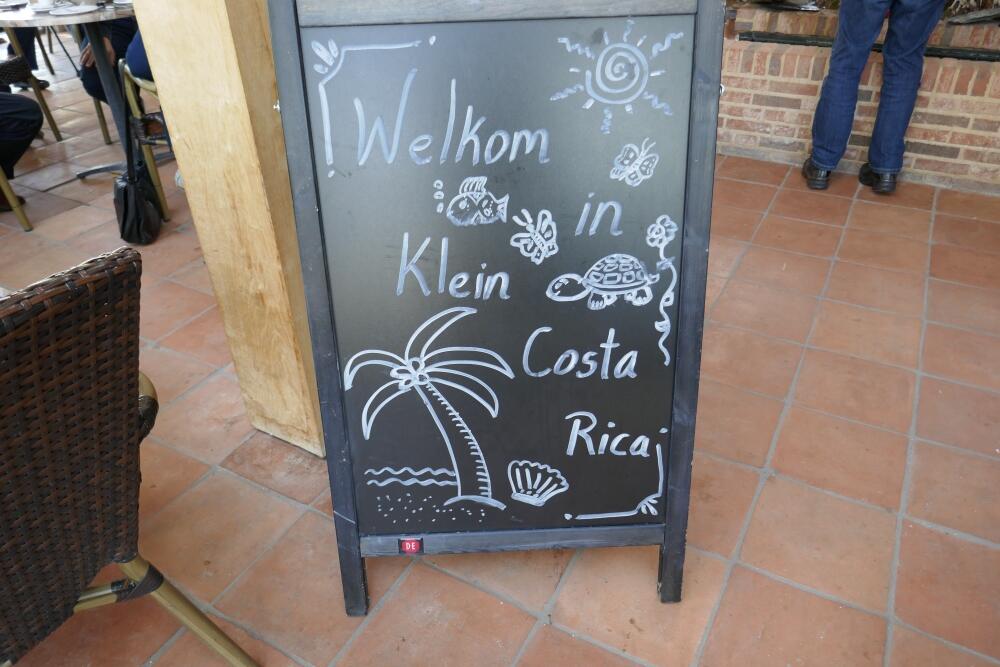 Welkom
in
Klein
Costa
Rica
DE